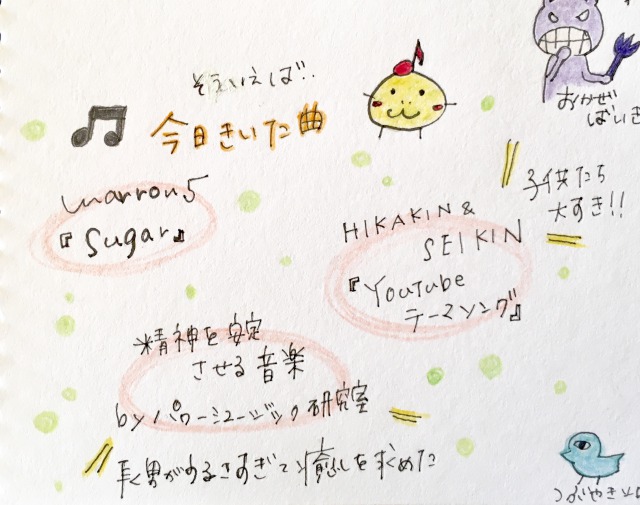 そういえば!!
今日きいた曲
marron5
『Sugar』
HIKAKIN &
SEIKIN
『YouTube
テーマソング』
子供たち
大すき!!
精神を安定
させる音楽
by パワーミュージック研究室
長男がうるさすぎて癒しを求めた
おかぜ
ばいき
つぶやき